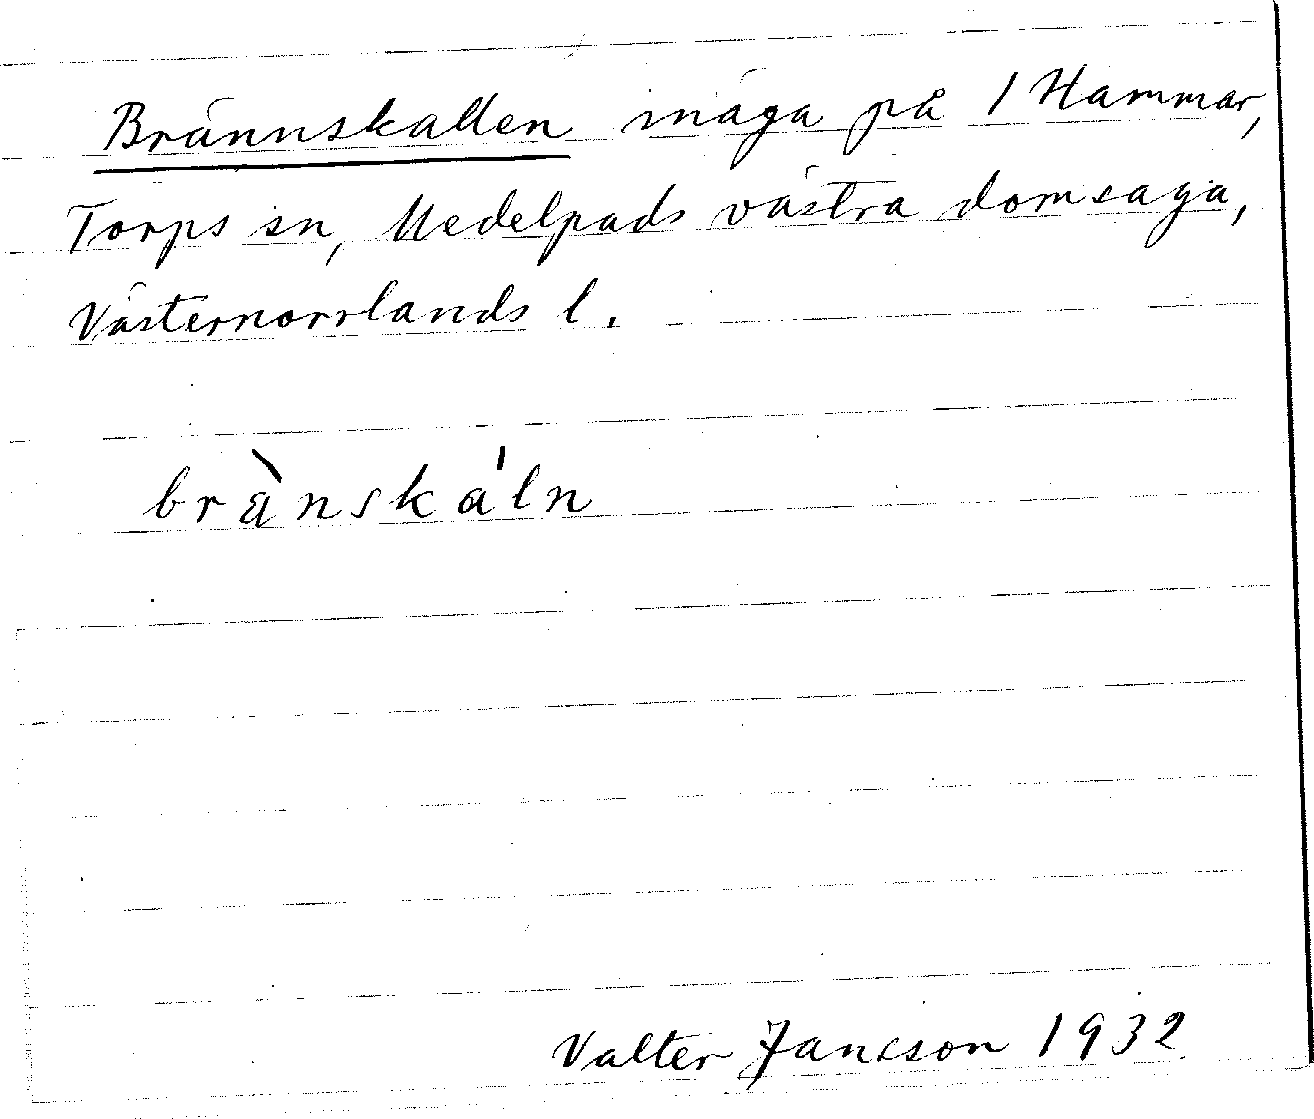 Brännskallen inäga på 1 Hammar,
Torps sn, Medelpads västra domsaga,
Västernorrlands l.
brä̀nskáln
Valter Jansson 1932